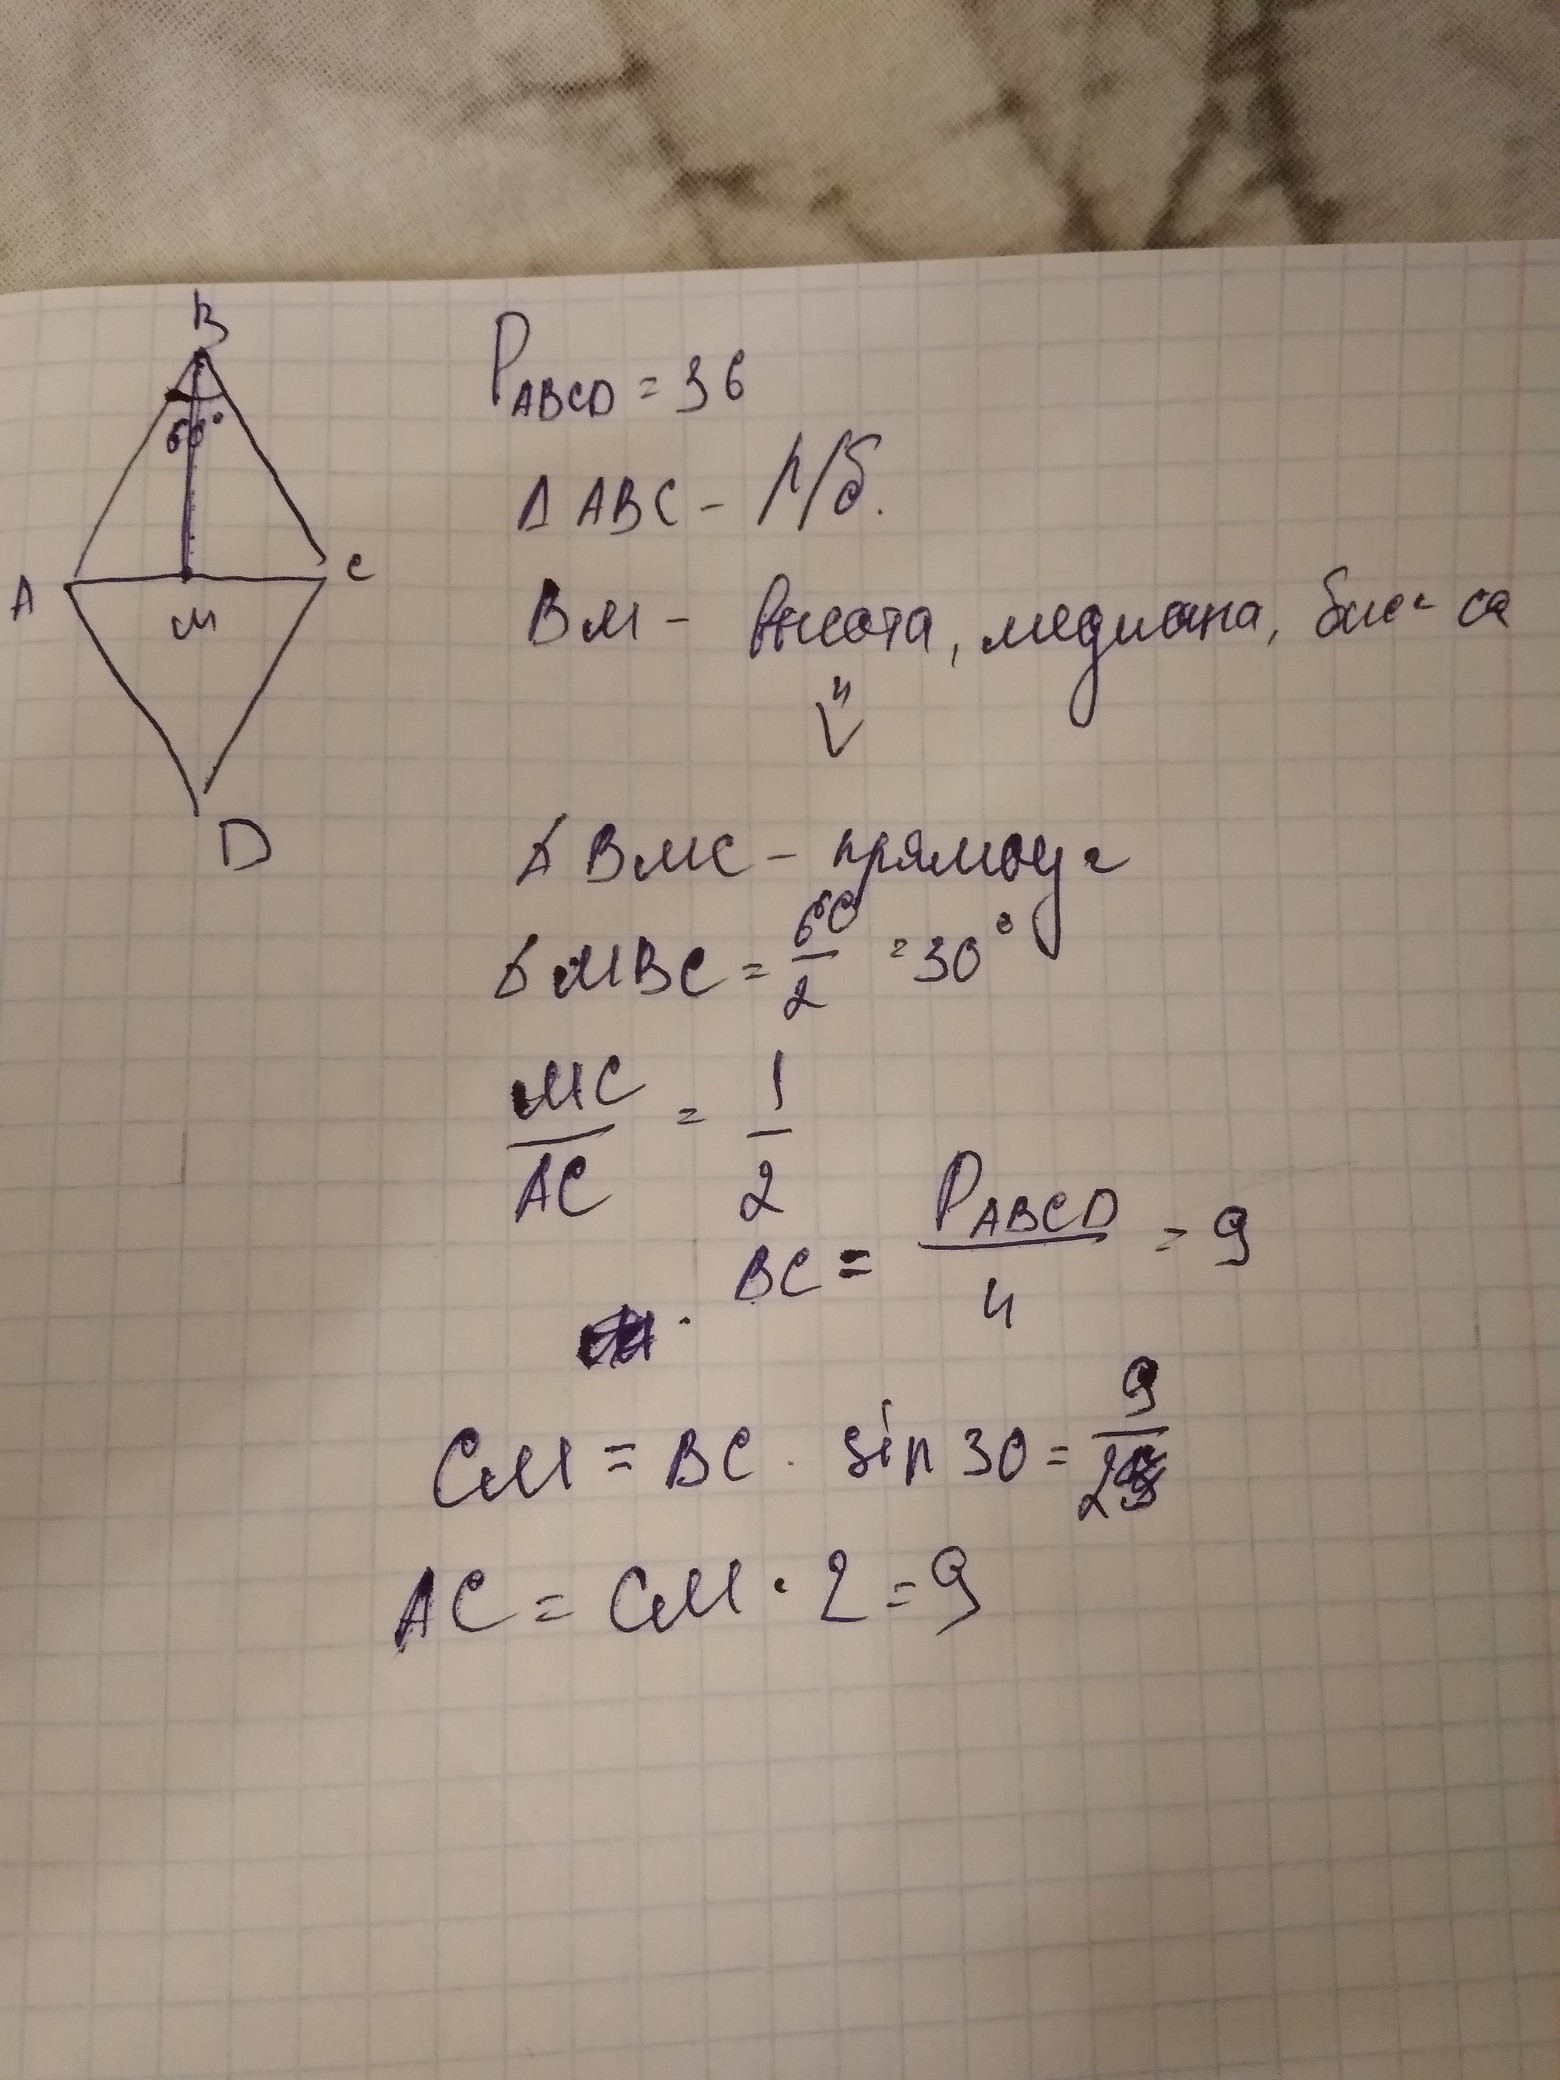 B
60°
A
M
C
D
P_ABCD = 36
Δ ABC - р/б.
BM - высота, медиана, бис-са
⇓
Δ BMC - прямоуг
∠ MBC = 60/2 = 30°
MC/AC = 1/2
BC = P_ABCD/4 = 9
CM = BC · sin 30 = 9/2
AC = CM · 2 = 9